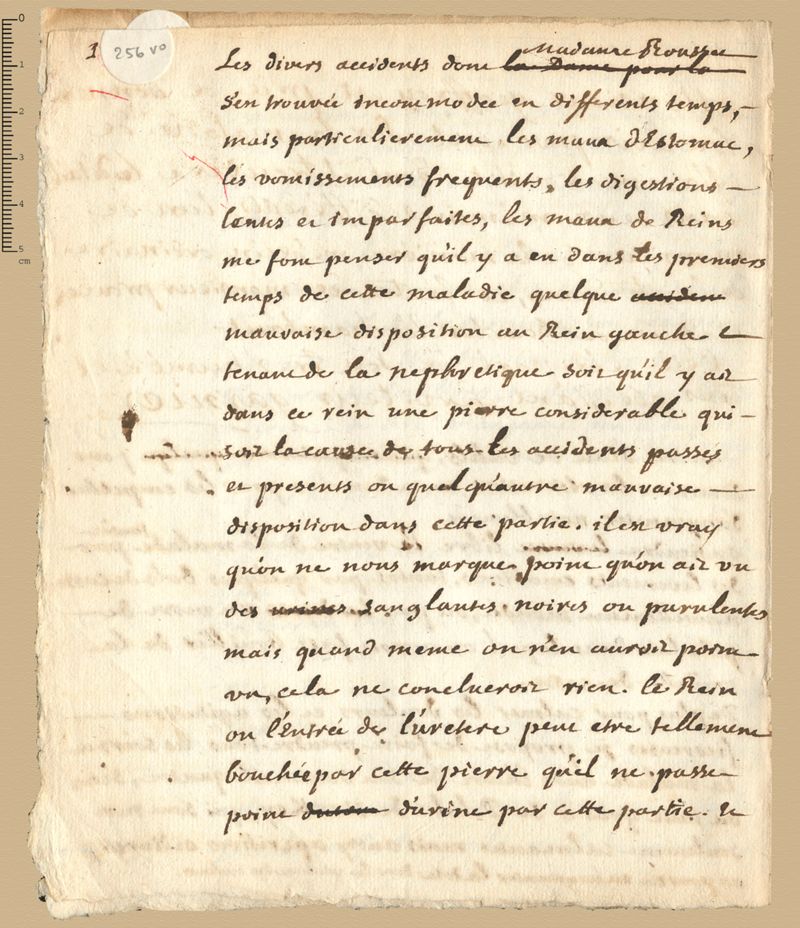 1
256 vo
Madame Rousseau
Les divers accidents dont la Dame pour la
s'en trouvée incommodée en differents temps,
mais particulierement les maux d'Estomac,
les vomissements frequents, les digestions
lentes et imparfaites, les maux de Reins
me font penser qu'il y a eu dans les premiers
temps de cette maladie quelque accident
mauvaise disposition au Rein gauche
tenant de la nephretique soit qu'il y ait
dans ce rein une pierre considerable qui
soit la cause de tous les accidents passés
et presents ou quelqu'autre mauvaise
disposition dans cette partie. il est vray
qu'on ne nous marque point qu'on ait vu
des urines sanglantes noires ou purulentes
mais quand meme on n'en auroit point
vu, cela ne conclueroit rien. le Rein
ou l'Entrée de l'uretere peut etre tellement
bouchée par cette pierre qu'il ne passe
point d'urine par cette partie. et
0
1
2
3
4
5
cm